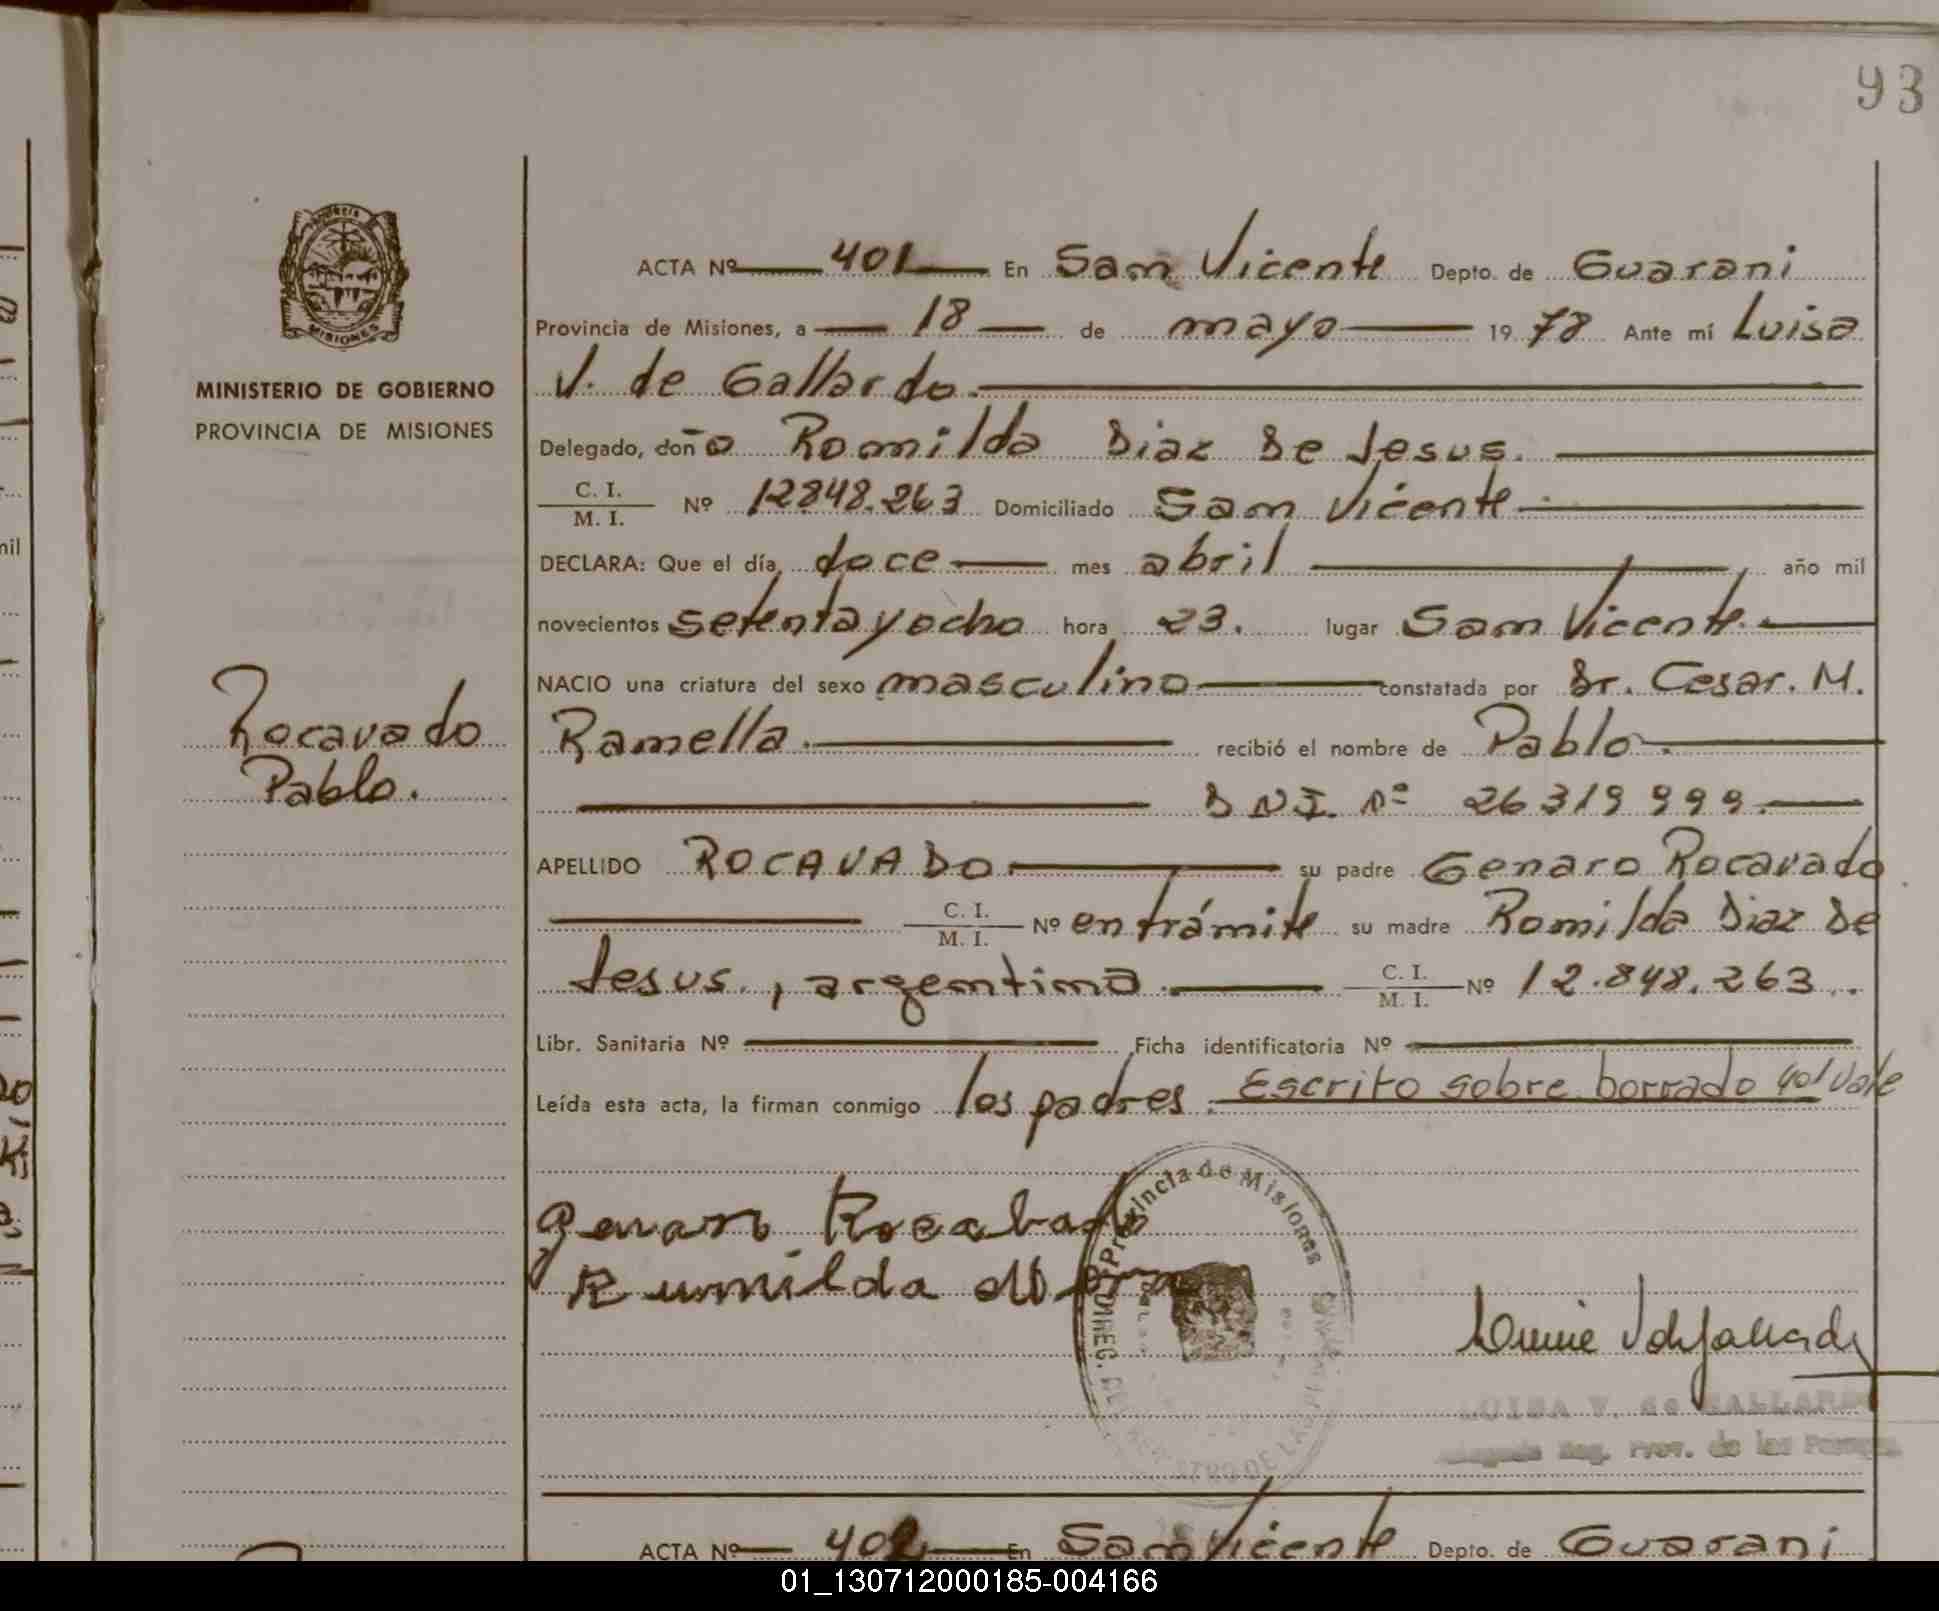 93
MINISTERIO DE GOBIERNO
PROVINCIA DE MISIONES
Rocavado
Pablo.
ACTA Nº 401 En San Vicente Depto. de Guarani
Provincia de Misiones, a 18 de mayo 1978 Ante mí Luisa
V. de Gallardo.
Delegado, doña Romilda Diaz De Jesus.
C. I. / M. I. Nº 12848.263 Domiciliado San Vicente
DECLARA: Que el día, doce mes abril año mil
novecientos setentayocho hora 23. lugar San Vicente.
NACIO una criatura del sexo masculino constatada por Dr. Cesar. M.
Ramella. recibió el nombre de Pablo.
D N I. nº 26319999.
APELLIDO ROCAVADO su padre Genaro Rocavado
C. I. / M. I. Nº en trámite su madre Romilda Diaz De
Jesus., argentina. C. I. / M. I. Nº 12.848.263..
Libr. Sanitaria Nº Ficha identificatoria Nº
Leída esta acta, la firman conmigo los padres. Escrito sobre borrado 401 vale
Provincia de Misiones
LUISA V. de GALLARDO
Reg. Prov. de las Personas
ACTA Nº 402 En San Vicente Depto. de Guarani
01_130712000185-004166